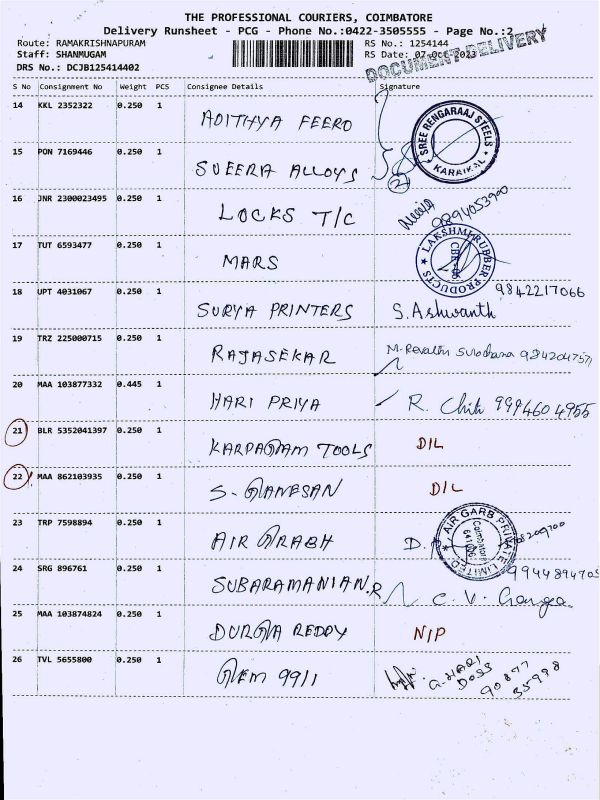 THE PROFESSIONAL COURIERS, COIMBATORE
Delivery Runsheet - PCG - Phone No.:0422-3505555 - Page No.:2
Route: RAMAKRISHNAPURAM RS No.: 1254144
Staff: SHANMUGAM RS Date: 07-Oct-2023
DRS No.: DCJB125414402 DOCUMENT DELIVERY
S No Consignment No Weight PCS Consignee Details Signature
14 KKL 2352322 0.250 1 ADITHYA FEERO SREE RENGARAAJ STEELS KARAIKAL
15 PON 7169446 0.250 1 SUEERA ALLOYS 2
16 JNR 2300023495 0.250 1 LOCKS T/C 9894053900
17 TUT 6593477 0.250 1 MARS LAKSHMI RUBBER PRODUCTS
18 UPT 4031067 0.250 1 SURYA PRINTERS S. Ashwanth 9842217066
19 TRZ 225000715 0.250 1 RAJASEKAR M. Revathi
20 MAA 103877332 0.445 1 HARI PRIYA R. 9994604955
21 BLR 5352041397 0.250 1 KARPAGAM TOOLS D/L
22 MAA 862103935 0.250 1 S. GANESAN D/L
23 TRP 7598894 0.250 1 AIR GRABH D. AIR GARB PRIVATE LIMITED Coimbatore
24 SRG 896761 0.250 1 SUBARAMANIAN.R C. V. Ganga 9944894705
25 MAA 103874824 0.250 1 DURGA REDDY N/P
26 TVL 5655800 0.250 1 GEM 9911 G. HARI DOSS 90877 35998